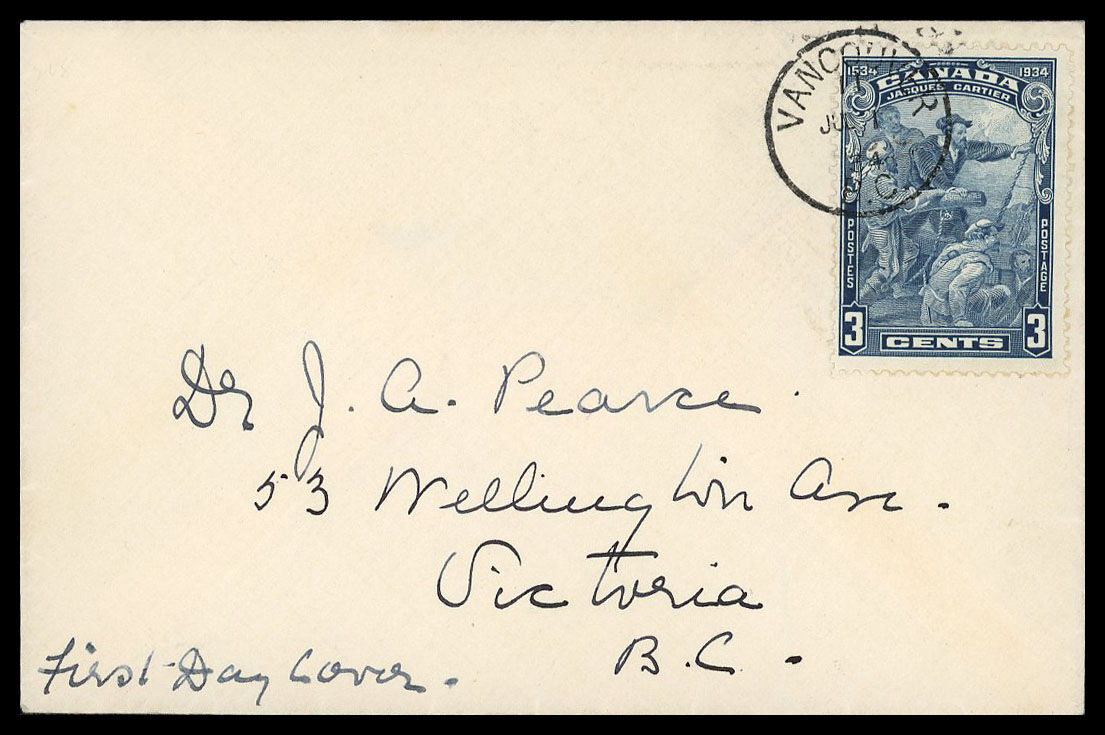 VANCOUVER
JUL 1
B.C.
1534 CANADA 1934
JACQUES CARTIER
POSTES
POSTAGE
3 CENTS 3
Dr J. A. Pearce
53 Wellington Ave.
Victoria
B.C.
First Day Cover.